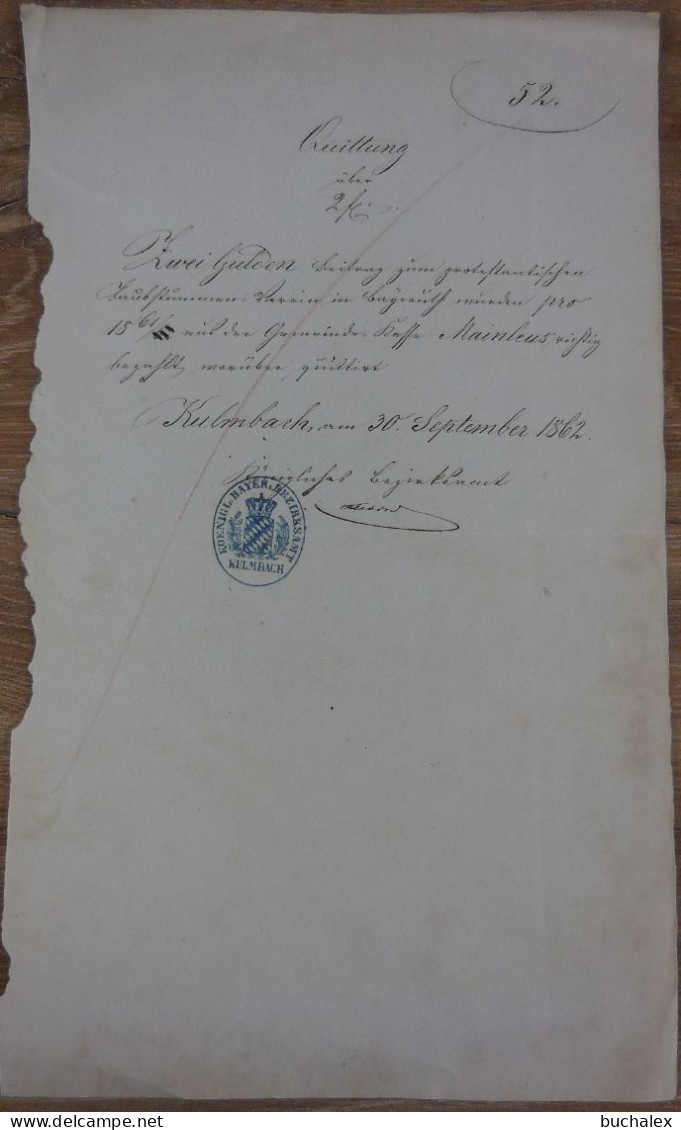 52.
Quittung
über
2 f.
Zwei Gulden Beitrag zum protestantischen
Taubstummen-Verein in Bayreuth wurden pro
1861/ aus der Gemeinde-Kasse Mainleus richtig
bezahlt, worüber quittirt
Kulmbach, am 30. September 1862.
Königliches Bezirksamt
KOENIGL. BAYER. BEZIRKSAMT
KULMBACH
www.delcampe.net
buchalex